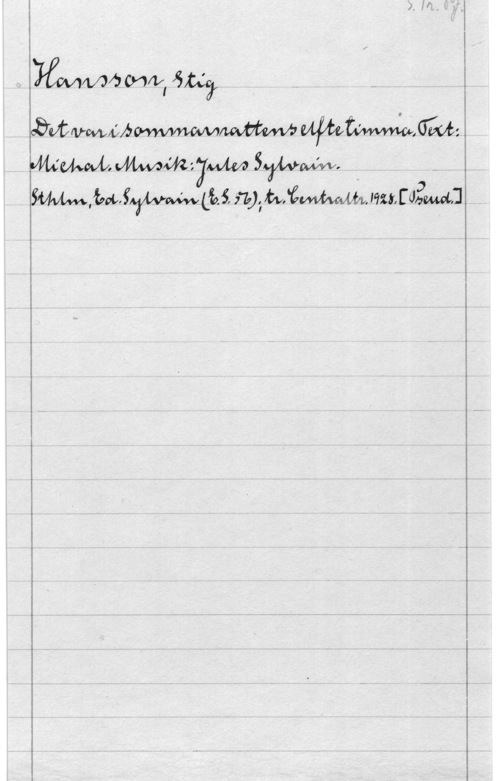 S. Tr. Öf.
Hansson, Stig
Det var i sommarnattens elfte timma. Text:
Michal. Musik: Jules Sylvain.
Sthlm, Ed. Sylvain (E.S. 56); tr. Centraltr. 1928. [Pseud.]